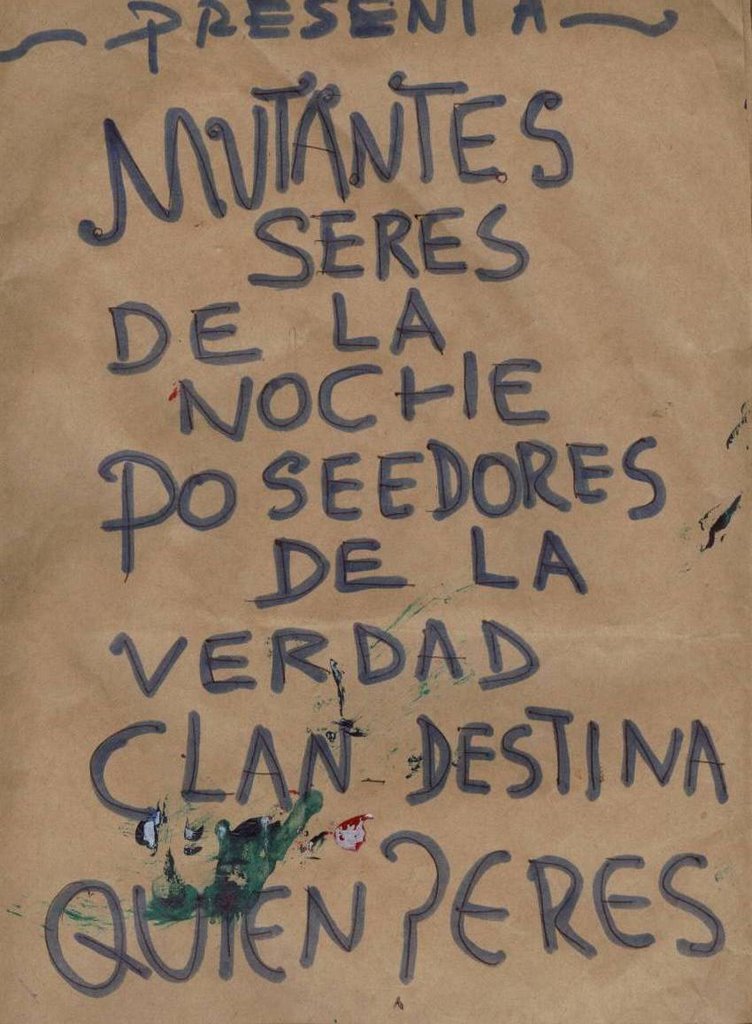 ~ PRESENTA ~
MUTANTES
SERES
DE LA
NOCHE
POSEEDORES
DE LA
VERDAD
CLAN-DESTINA
QUIEN ? ERES